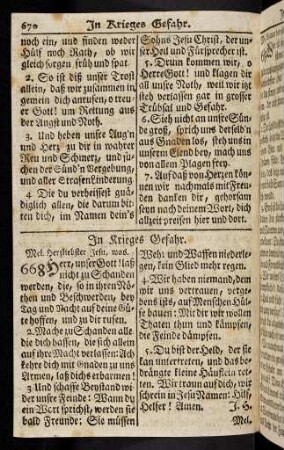 670 In Krieges Gefahr.
noch ein, und finden weder
Hülf noch Rath, ob wir
gleich sorgen früh und spat.
2. So ist diß unser Trost
allein, daß wir zusammen in
gemein dich anrufen, o treu-
er Gott! um Rettung aus
der Angst und Noth.
3. Und heben unsre Aug'n
und Hertz zu dir in wahrer
Reu und Schmertz, und su-
chen der Sünd'n Vergebung,
und aller Strafen Linderung.
4 Die du verheissest gnä-
diglich, allen, die darum bit-
ten dich, im Namen dein's
Sohns Jesu Christ, der un-
ser Heil und Fürsprecher ist.
5. Drum kommen wir, o
Herre Gott! und klagen dir
all unsre Noth, weil wir itzt
stehn verlassen gar in grosser
Trübsal und Gefahr.
6. Sieh nicht an unsre Sün-
de groß, sprich uns derselb'n
aus Gnaden los, steh uns in
unserm Elend bey, mach uns
von allen Plagen frey.
7. Auf daß von Hertzen kön-
nen wir nachmals mit Freu-
den danken dir, gehorsam
seyn nach deinem Wort, dich
allzeit preisen hier und dort.
In Krieges Gefahr.
Mel. Hertzliebster Jesu, was.
668 Herr, unser Gott! laß
nicht zu Schanden
werden, die, so in ihren Nö-
then und Beschwerden, bey
Tag und Nacht auf deine Gü-
te hoffen, und zu dir rufen.
2. Mache zu Schanden alle
die dich hassen, die sich allein
auf ihre Macht verlassen: Ach
kehre dich mit Gnaden zu uns
Armen, laß dichs erbarmen!
3 Und schaffe Beystand wi-
der unsre Feinde: Wann du
ein Wort sprichst, werden sie
bald Freunde: Sie müssen
Wehr und Waffen niederle-
gen, kein Glied mehr regen.
4. Wir haben niemand, dem
wir uns vertrauen, verge-
bens ists, auf Menschen Hül-
fe bauen: Mit dir wir wollen
Thaten thun und kämpfen,
die Feinde dämpfen.
5. Du bist der Held, der sie
kan untertreten, und das be-
drängte kleine Häuflein ret-
ten. Wir traun auf dich, wir
schreyn in Jesu Namen: Hilf,
Helfer! Amen. J. H.
Mel.